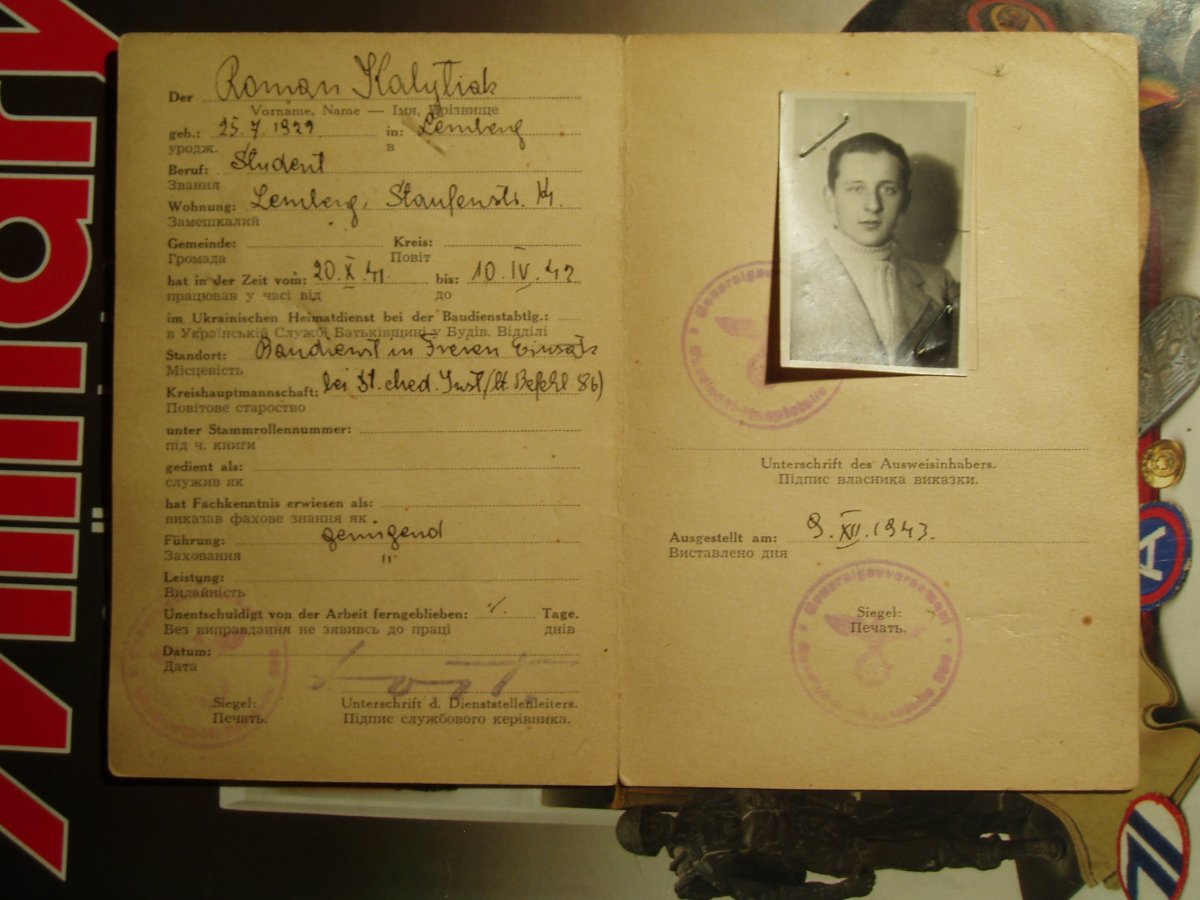 Military
Der Roman Kalytiak
Vorname, Name — Імя, Прізвище
geb.: 25.7.1922 in: Lemberg
уродж. в
Beruf: Student
Звання
Wohnung: Lemberg, Staufenstr. 14.
Замешкалий
Gemeinde: Kreis:
Громада Повіт
hat in der Zeit vom: 20.X.41. bis: 10.IV.42
працював у часі від до
im Ukrainischen Heimatdienst bei der Baudienstabtlg.:
в Українській Службі Батьківщині у Будів. Відділі
Standort: Baudienst in Freien Einsatz
Місцевість
Kreishauptmannschaft: bei St. Med. Inst/lt. Befehl 86)
Повітове староство
unter Stammrollennummer:
під ч. книги
gedient als:
служив як
hat Fachkenntnis erwiesen als:
виказав фахове знання як
Führung: genügend
Заховання "
Leistung:
Видайність
Unentschuldigt von der Arbeit ferngeblieben: Tage.
Без виправдання не зявивсь до праці днів
Datum:
Дата
Siegel: Unterschrift d. Dienststellenleiters.
Печать. Підпис службового керівника.
Unterschrift des Ausweisinhabers.
Підпис власника виказки.
Ausgestellt am: 9.XII.1943.
Виставлено дня
Generalgouvernement
Siegel:
Печать.
A